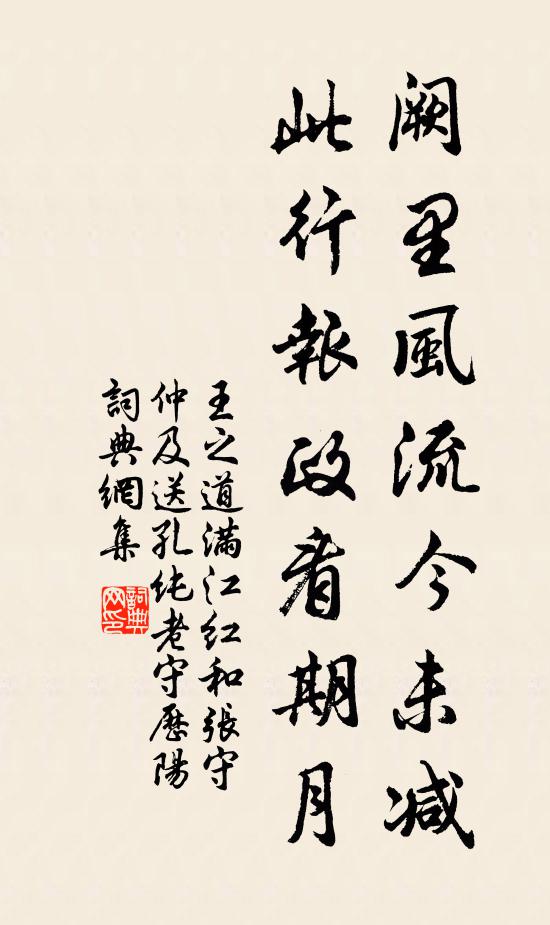 阙里風流今未减
此行報政看期月
王之道滿江紅和張守
仲及送孔纯老守歷陽
詞典網集
詞典网印